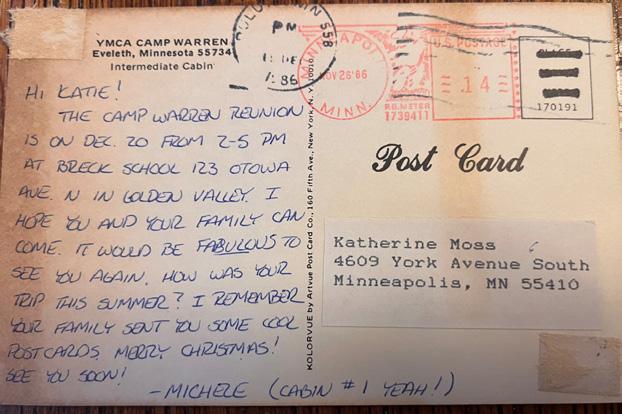 YMCA CAMP WARREN
Eveleth, Minnesota 55734
Intermediate Cabin
HI KATIE!
THE CAMP WARREN REUNION
IS ON DEC. 20 FROM 2-5 PM
AT BRECK SCHOOL 123 OTOWA
AVE. N IN GOLDEN VALLEY. I
HOPE YOU AND YOUR FAMILY CAN
COME. IT WOULD BE FABULOUS TO
SEE YOU AGAIN. HOW WAS YOUR
TRIP THIS SUMMER? I REMEMBER
YOUR FAMILY SENT YOU SOME COOL
POSTCARDS. MERRY CHRISTMAS!
SEE YOU SOON!
-MICHELE (CABIN #1 YEAH!)
KOLORVUE by Artvue Post Card Co., 160 Fifth Ave., New York, N. Y. 10010
MIN 558
PM
1986
MINNEAPOLIS
NOV 26'86
MINN.
U.S. POSTAGE
.14
P.B. METER
1739411
170191
Post Card
Katherine Moss
4609 York Avenue South
Minneapolis, MN 55410